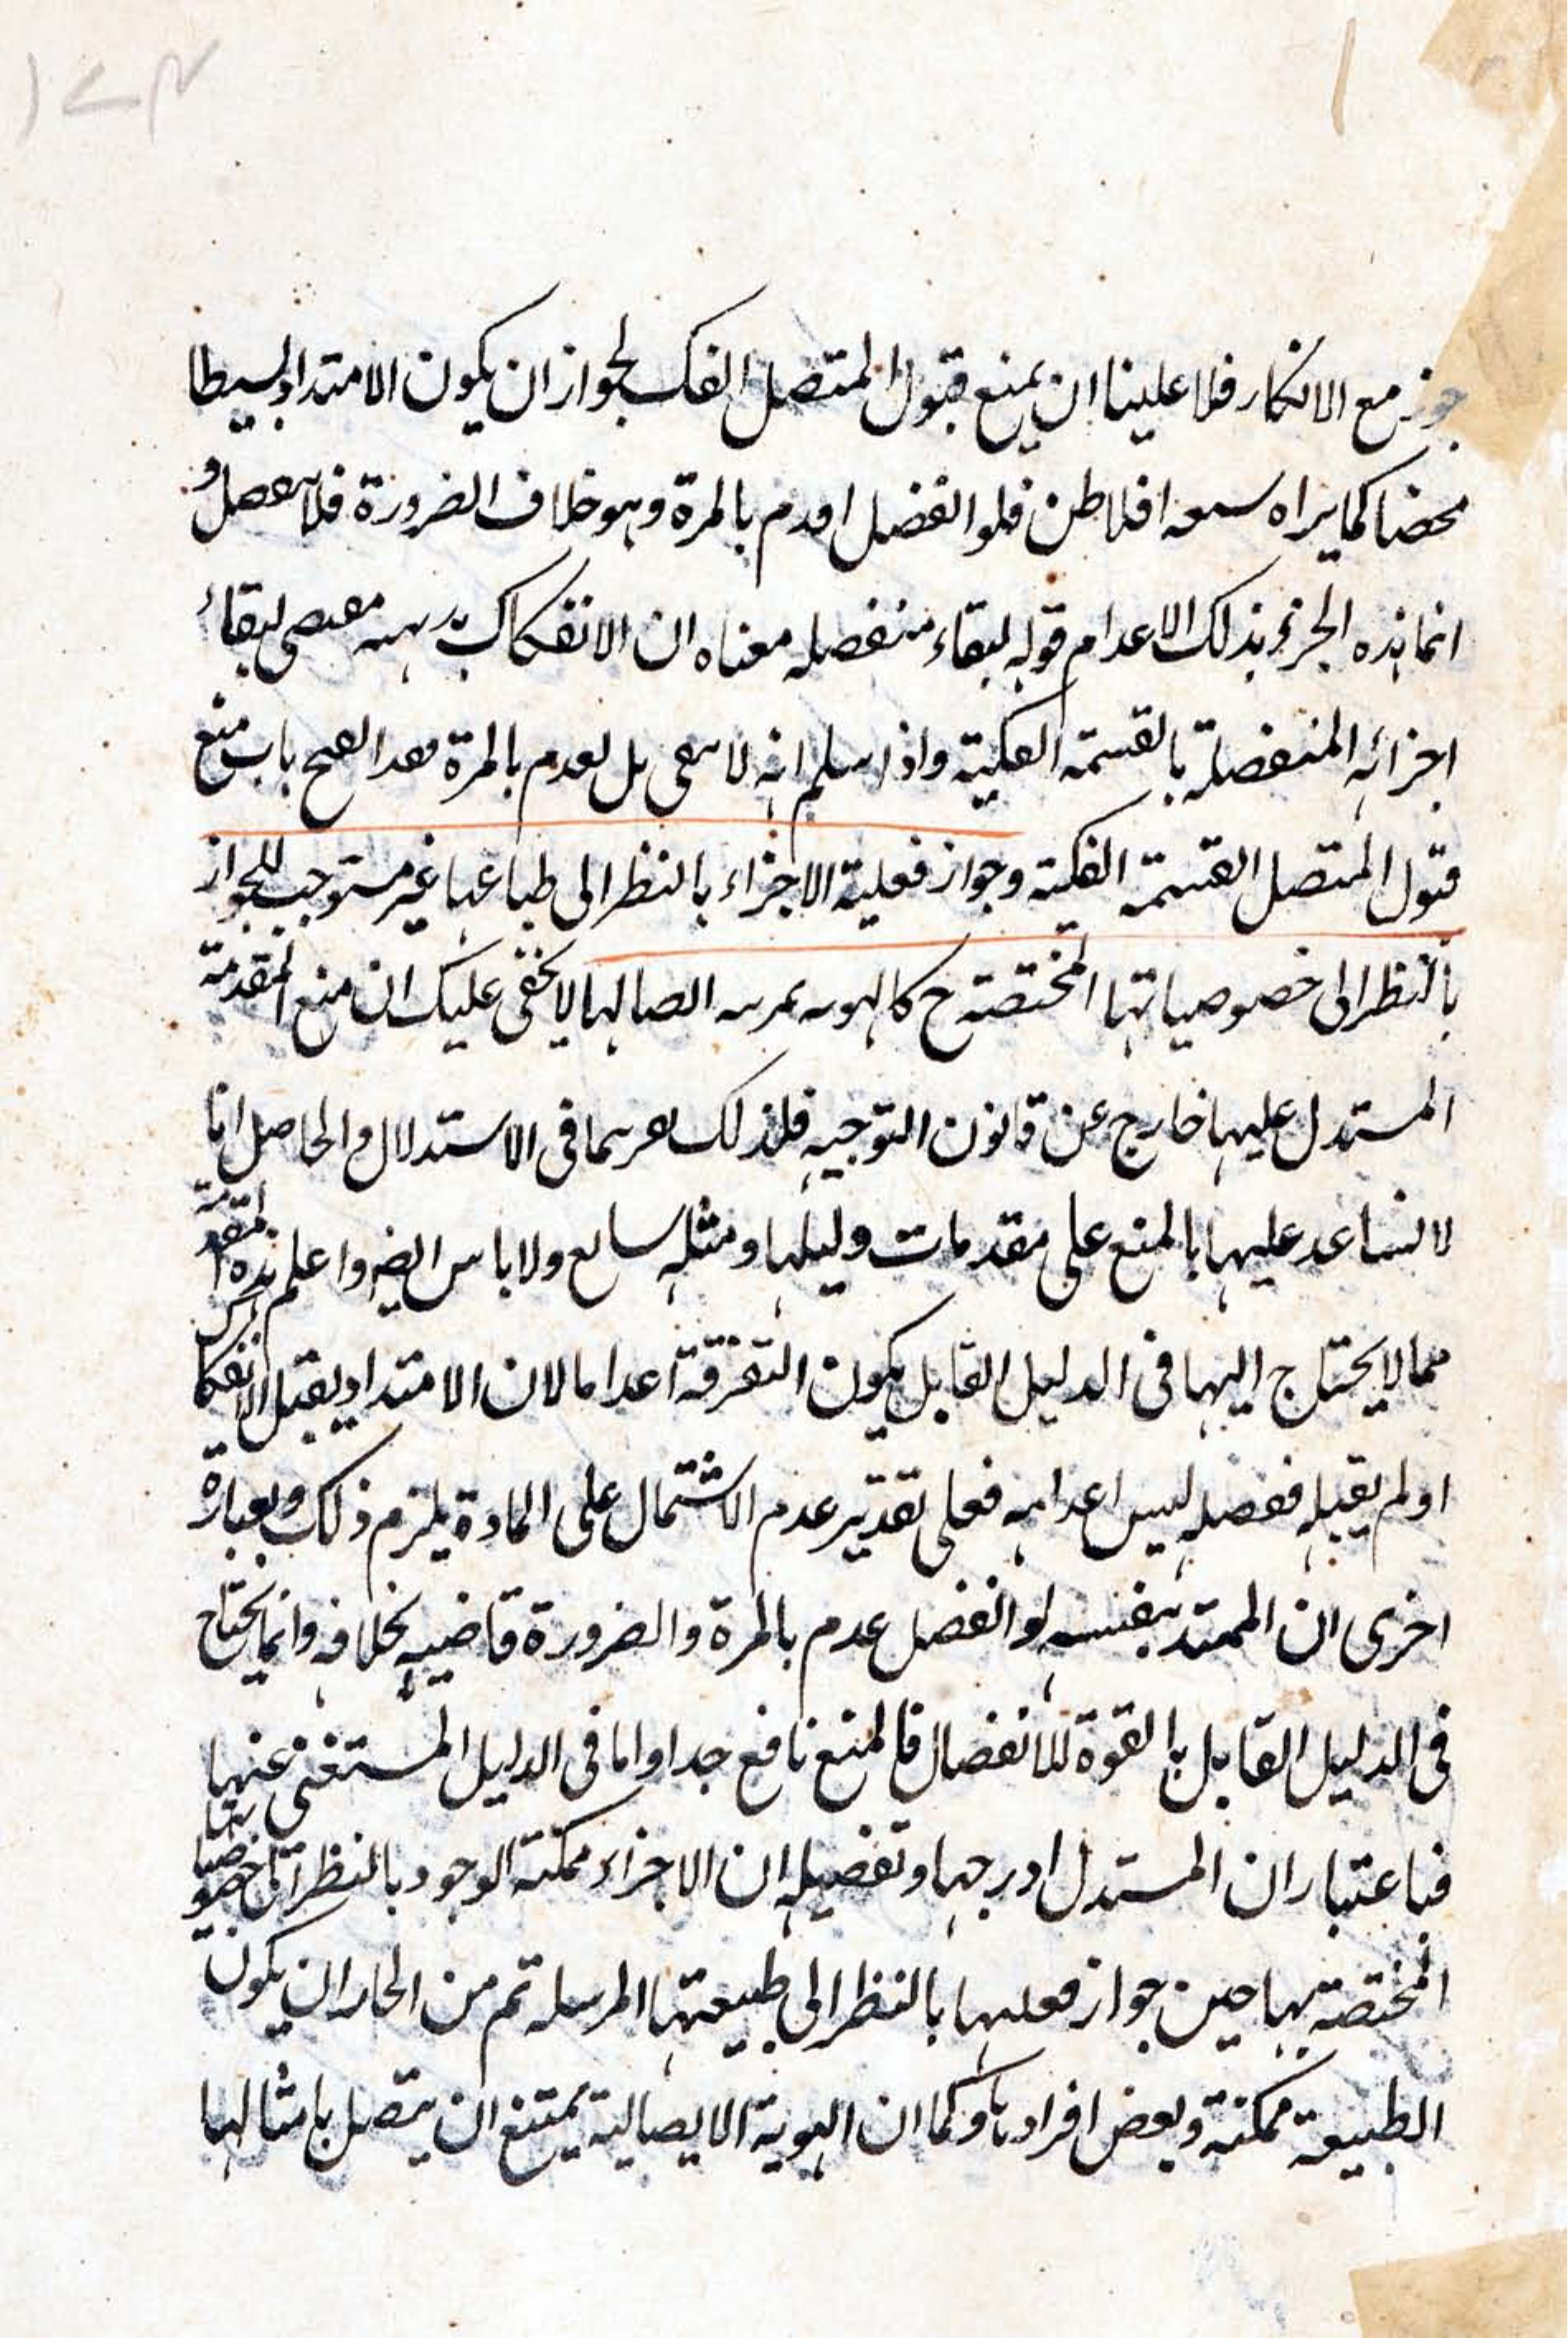 ١٢٣
١
جوز مع الانكار فلا علينا ان يمنع قبول المتصل الفك لجواز ان يكون الامتداد بسيطا
محضا كما يراه افلاطن فلو انفصل اعدم بالمرة وهو خلاف الضرورة فلا
انما هذه الجزئ بذلك الاعدام قوله لبقاء منفصله معناه ان الانفكاك لبقاء
اجزائه المنفصلة بالقسمة الفكية واذا سلم انه لا بل بعدم بالمرة باب منع
قبول المتصل القسمة الفكية وجواز فعلية الاجزاء بالنظر الى طباعها غير مستوجب للجواز
بالنظر الى خصوصياتها المختصة ح لا يخفى عليك ان منع المقدمة
المستدل عليها خارج عن قانون التوجيه فلذلك في الاستدلال والحاصل انا
لا نساعد عليها بالمنع على مقدمات دليلها ومثله ولا باس ايضا واعلم ان هذه المقدمة
مما لا يحتاج اليها في الدليل القابل بكون التفرقة اعداما لان الامتداد يقبل الانفكاك
او لم يقبله ففصله ليس اعدامه فعلى تقدير عدم الاشتمال على المادة يلزم ذلك وبعبارة
اخرى ان الممتد بنفسه لو انفصل عدم بالمرة والضرورة قاضيه بخلافه وانما يحتاج
في الدليل القابل بالقوة للانفصال فالمنع نافع جدا واما في الدليل المستغنى عنها
فباعتبار ان المستدل ادرجها وتفصيله ان الاجزاء ممكنة الوجود بالنظر الى خصوصياتها
المختصة بها حين جواز فعليتها بالنظر الى طبيعتها المرسله ثم من ان يكون
الطبيعة ممكنة وبعض افرادها وكما ان الهوية الايصالية يمتنع ان يتصل بامثالها